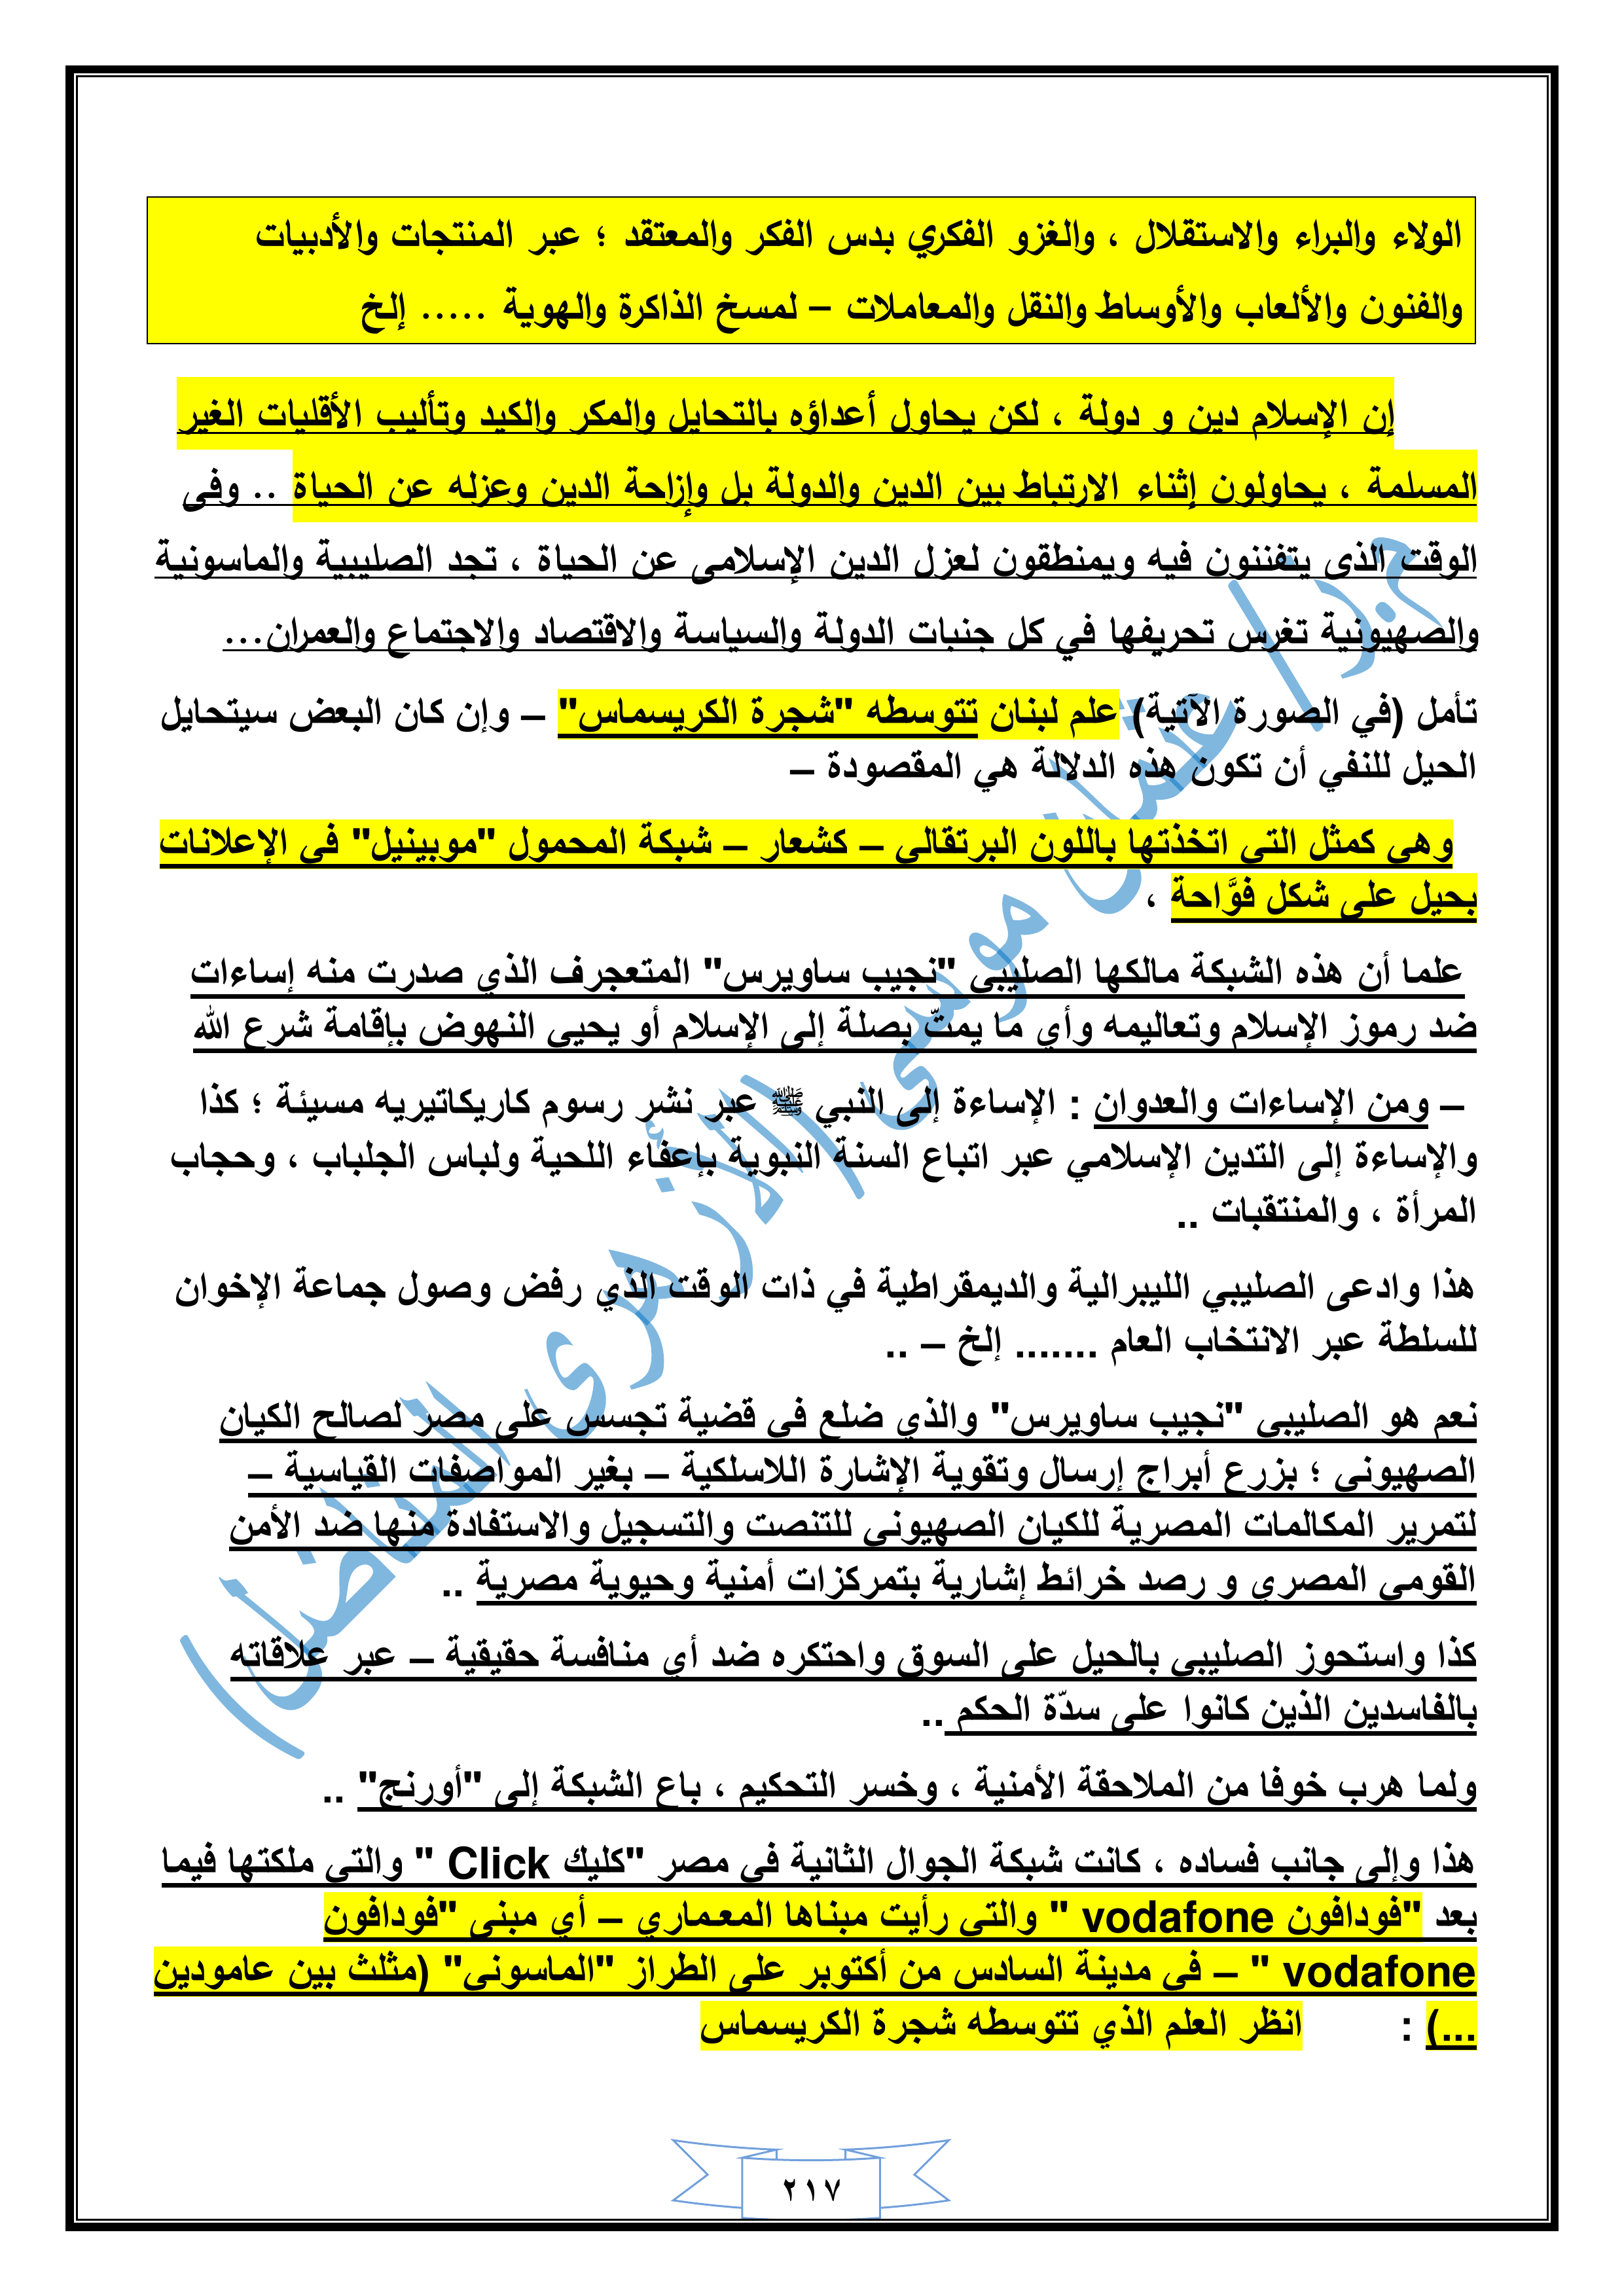 الولاء والبراء والاستقلال ، والغزو الفكري بدس الفكر والمعتقد ؛ عبر المنتجات والأدبيات
والفنون والألعاب والأوساط والنقل والمعاملات – لمسخ الذاكرة والهوية ..... إلخ
إن الإسلام دين و دولة ، لكن يحاول أعداؤه بالتحايل والمكر والكيد وتأليب الأقليات الغير
المسلمة ، يحاولون إثناء الارتباط بين الدين والدولة بل وإزاحة الدين وعزله عن الحياة .. وفى
الوقت الذى يتفننون فيه ويمنطقون لعزل الدين الإسلامى عن الحياة ، تجد الصليبية والماسونية
والصهيونية تغرس تحريفها في كل جنبات الدولة والسياسة والاقتصاد والاجتماع والعمران...
تأمل (في الصورة الآتية) علم لبنان تتوسطه "شجرة الكريسماس" – وإن كان البعض سيتحايل
الحيل للنفي أن تكون هذه الدلالة هي المقصودة –
وهي كمثل التي اتخذتها باللون البرتقالي – كشعار – شبكة المحمول "موبينيل" في الإعلانات
بحيل على شكل فوَّاحة ،
علما أن هذه الشبكة مالكها الصليبي "نجيب ساويرس" المتعجرف الذي صدرت منه إساءات
ضد رموز الإسلام وتعاليمه وأي ما يمتّ بصلة إلى الإسلام أو يحيي النهوض بإقامة شرع الله
– ومن الإساءات والعدوان : الإساءة إلى النبي ﷺ عبر نشر رسوم كاريكاتيريه مسيئة ؛ كذا
والإساءة إلى التدين الإسلامي عبر اتباع السنة النبوية بإعفاء اللحية ولباس الجلباب ، وحجاب
المرأة ، والمنتقبات ..
هذا وادعى الصليبي الليبرالية والديمقراطية في ذات الوقت الذي رفض وصول جماعة الإخوان
للسلطة عبر الانتخاب العام ....... إلخ – ..
نعم هو الصليبي "نجيب ساويرس" والذي ضلع في قضية تجسس على مصر لصالح الكيان
الصهيوني ؛ بزرع أبراج إرسال وتقوية الإشارة اللاسلكية – بغير المواصفات القياسية –
لتمرير المكالمات المصرية للكيان الصهيوني للتنصت والتسجيل والاستفادة منها ضد الأمن
القومي المصري و رصد خرائط إشارية بتمركزات أمنية وحيوية مصرية ..
كذا واستحوز الصليبي بالحيل على السوق واحتكره ضد أي منافسة حقيقية – عبر علاقاته
بالفاسدين الذين كانوا على سدّة الحكم ..
ولما هرب خوفا من الملاحقة الأمنية ، وخسر التحكيم ، باع الشبكة إلى "أورنج" ..
هذا وإلى جانب فساده ، كانت شبكة الجوال الثانية في مصر "كليك Click " والتي ملكتها فيما
بعد "فودافون vodafone " والتي رأيت مبناها المعماري – أي مبنى "فودافون
vodafone " – في مدينة السادس من أكتوبر على الطراز "الماسوني" (مثلث بين عامودين
...) : انظر العلم الذي تتوسطه شجرة الكريسماس
م.د/ عثمان موسى (الأزهرى المناضل)
٢١٧